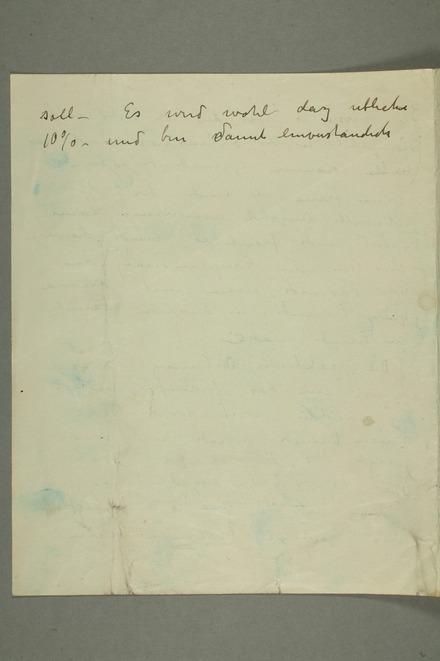 soll – Es wird wohl das übliche
10% – und bin damit einverstanden